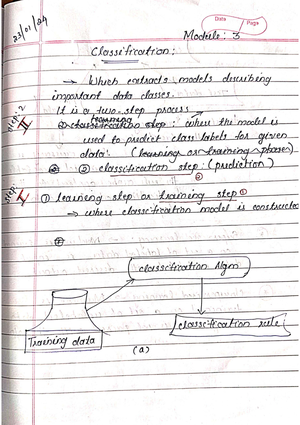 23/01/24
Date Page
Module: 3
Classification:
→ Which extracts models describing
important data classes.
It is a two step process →
learning
step: 2
II
① classification step: where the model is
used to predict class labels for given
data. (learning or training phase)
② classification step: (prediction)
②
step:
I
① learning step or training step ①
→ where classification model is constructed
classification Algm
Training data
classification rule:
(a)